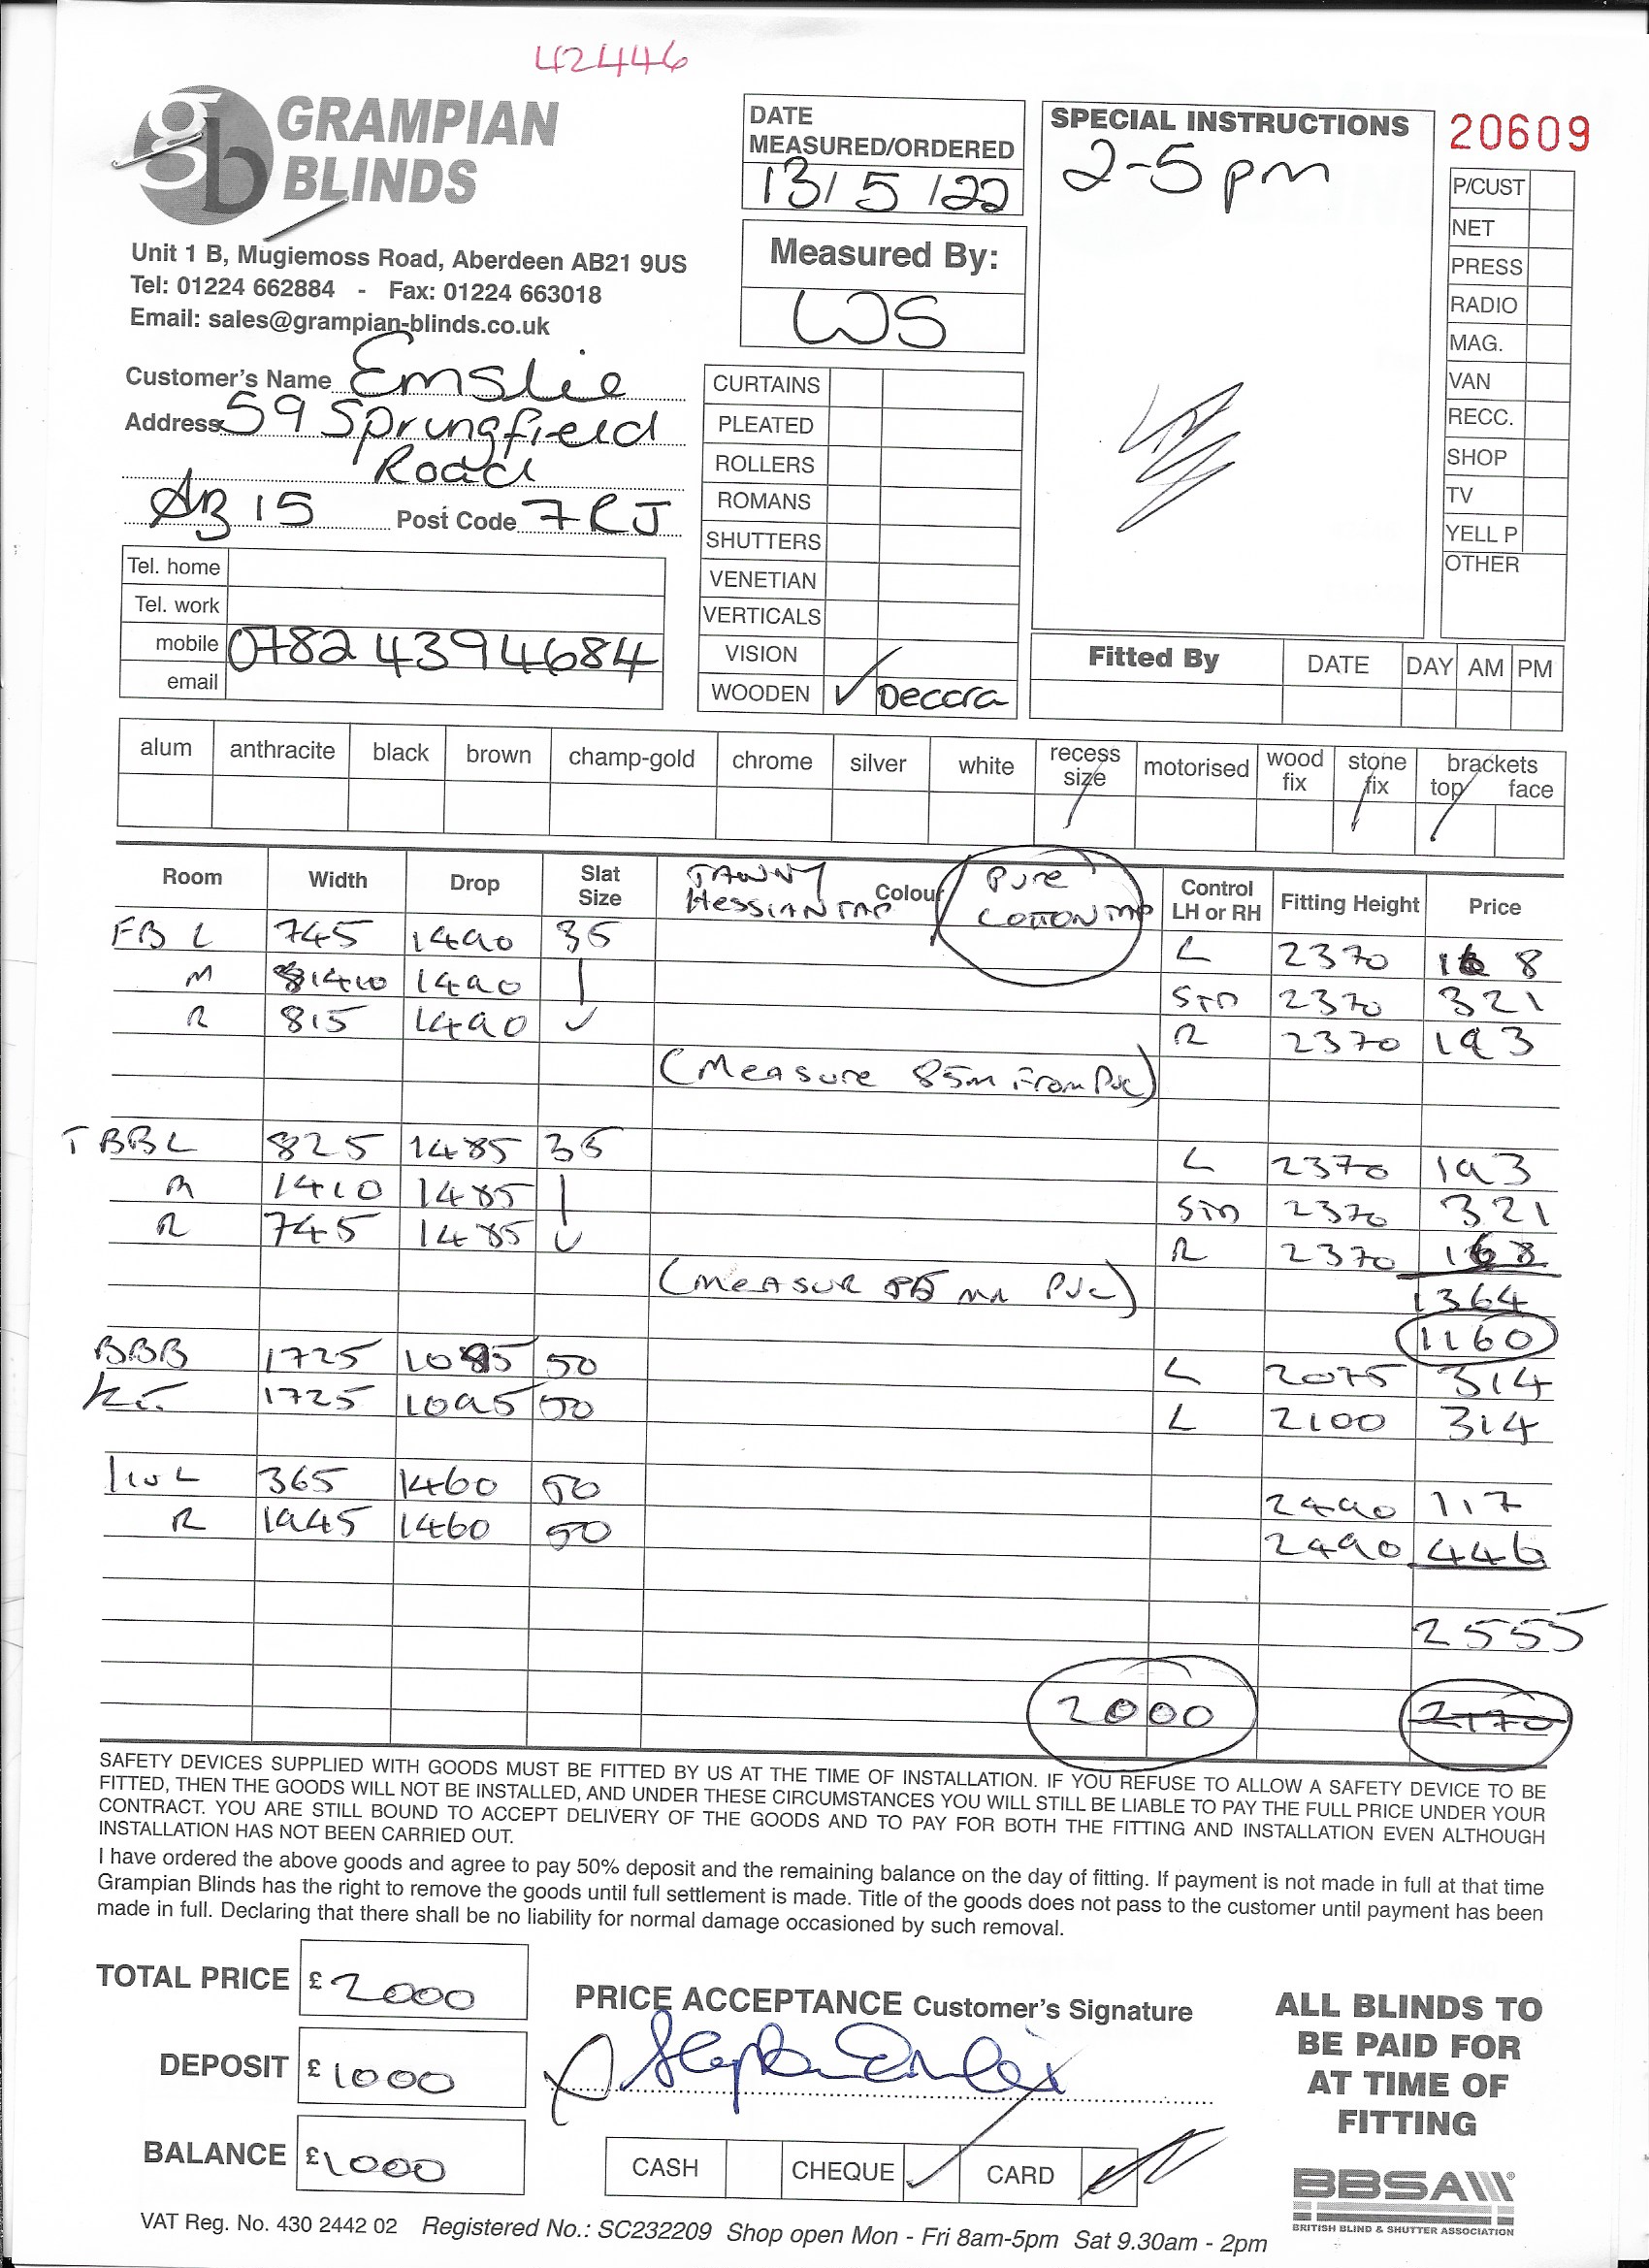 42446
GRAMPIAN
BLINDS
Unit 1 B, Mugiemoss Road, Aberdeen AB21 9US
Tel: 01224 662884 - Fax: 01224 663018
Email: sales@grampian-blinds.co.uk
Customer's Name Emslie
Address 59 Springfield
Road
AB 15 Post Code 7RJ
Tel. home
Tel. work
mobile 0782 4394684
email
DATE
MEASURED/ORDERED
13/5/22
Measured By:
WS
CURTAINS
PLEATED
ROLLERS
ROMANS
SHUTTERS
VENETIAN
VERTICALS
VISION
WOODEN ✓ Decora
SPECIAL INSTRUCTIONS
2-5pm
20609
P/CUST
NET
PRESS
RADIO
MAG.
VAN
RECC.
SHOP
TV
YELL P
OTHER
Fitted By DATE DAY AM PM
alum anthracite black brown champ-gold chrome silver white recess size motorised wood fix stone fix brackets top face
Room Width Drop Slat Size TAWNY HESSIAN TAP Colour PURE COTTON TAP Control LH or RH Fitting Height Price
FB L 745 1490 35 L 2370 168
M 1410 1490 STD 2370 321
R 815 1490 ✓ R 2370 193
(Measure 85m From PVC)
TBBL 825 1485 35 L 2370 193
M 1410 1485 STD 2370 321
R 745 1485 R 2370 168
(MEASUR 85 mm PVC)
1364
1160
BBB 1725 1095 50 L 2075 314
Kit 1725 1095 50 L 2100 314
L 365 1460 50 2490 117
R 1945 1460 50 2490 446
2555
2000 2170
SAFETY DEVICES SUPPLIED WITH GOODS MUST BE FITTED BY US AT THE TIME OF INSTALLATION. IF YOU REFUSE TO ALLOW A SAFETY DEVICE TO BE
FITTED, THEN THE GOODS WILL NOT BE INSTALLED, AND UNDER THESE CIRCUMSTANCES YOU WILL STILL BE LIABLE TO PAY THE FULL PRICE UNDER YOUR
CONTRACT. YOU ARE STILL BOUND TO ACCEPT DELIVERY OF THE GOODS AND TO PAY FOR BOTH THE FITTING AND INSTALLATION EVEN ALTHOUGH
INSTALLATION HAS NOT BEEN CARRIED OUT.
I have ordered the above goods and agree to pay 50% deposit and the remaining balance on the day of fitting. If payment is not made in full at that time
Grampian Blinds has the right to remove the goods until full settlement is made. Title of the goods does not pass to the customer until payment has been
made in full. Declaring that there shall be no liability for normal damage occasioned by such removal.
TOTAL PRICE £2000
DEPOSIT £1000
BALANCE £1000
PRICE ACCEPTANCE Customer's Signature
CASH CHEQUE ✓ CARD
ALL BLINDS TO
BE PAID FOR
AT TIME OF
FITTING
BBSA
BRITISH BLIND & SHUTTER ASSOCIATION
VAT Reg. No. 430 2442 02 Registered No.: SC232209 Shop open Mon - Fri 8am-5pm Sat 9.30am - 2pm